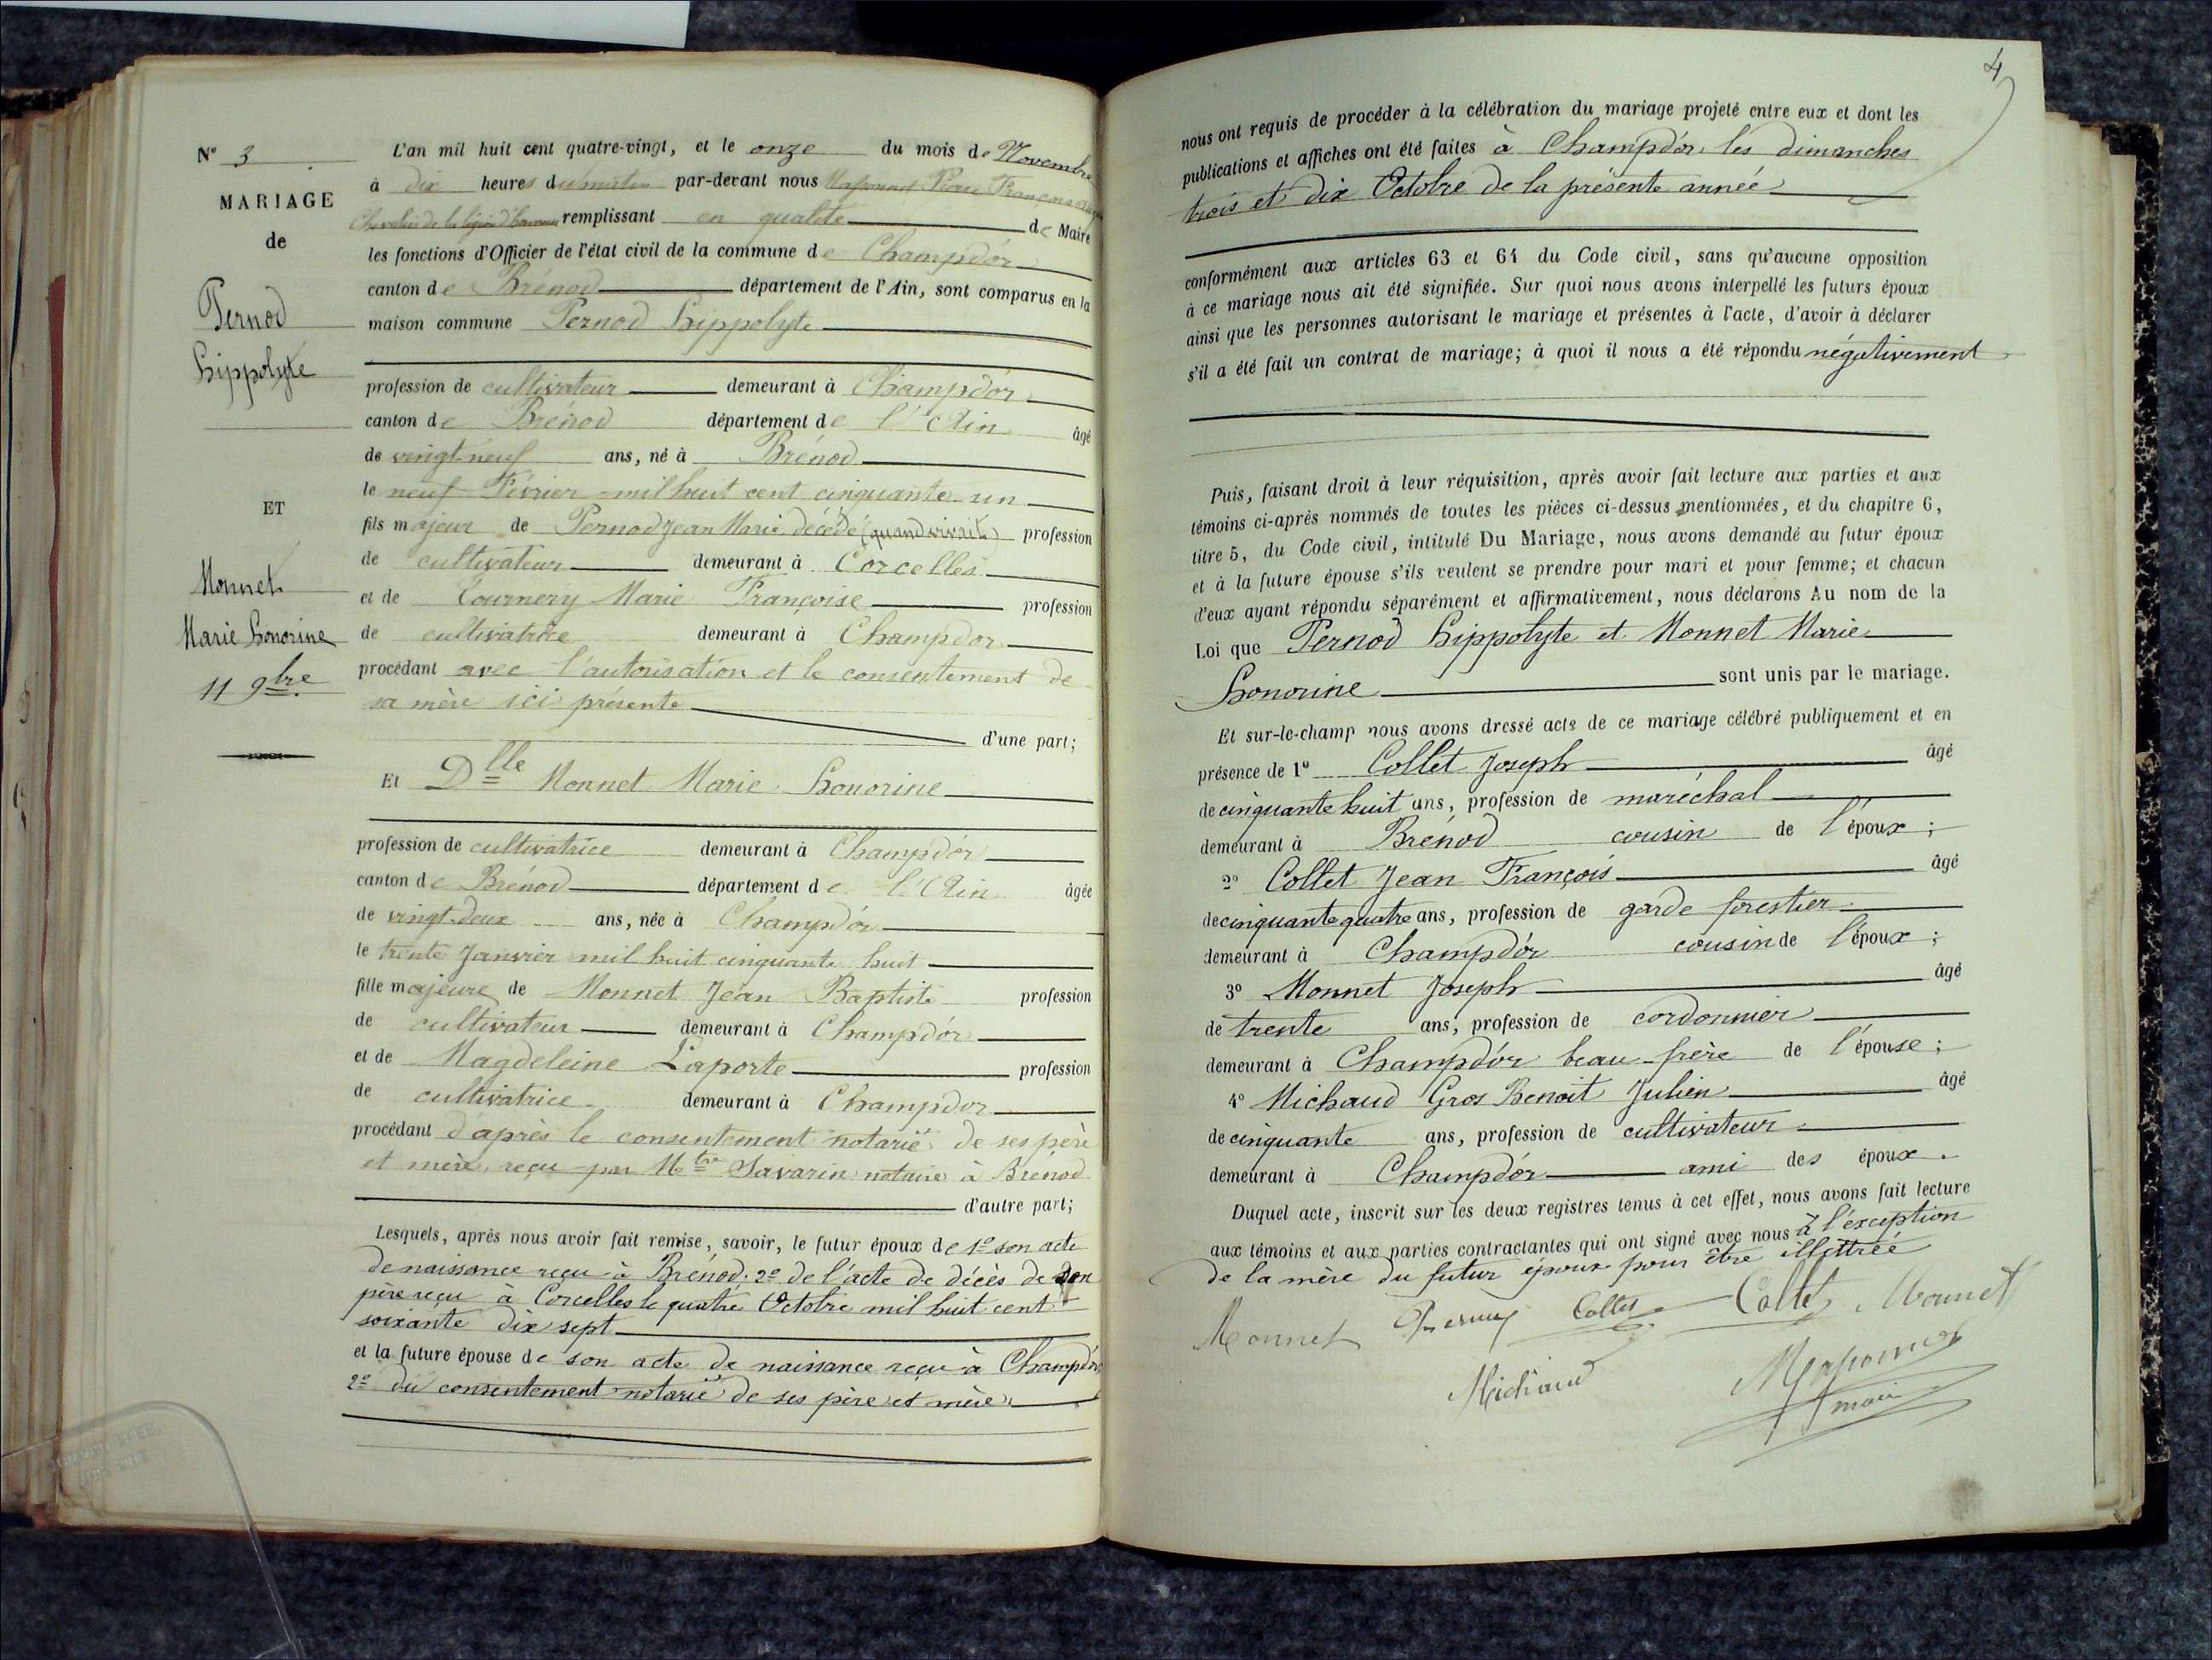 N° 3
MARIAGE
de
Pernod
hippolyte
ET
Monnet
Marie honorine
11 9bre
L'an mil huit cent quatre-vingt, et le onze du mois de Novembre
à dix heures du matin par-devant nous Massonnet Pierre François
Chevalier de la légion d'honneur remplissant en qualité de Maire
les fonctions d'Officier de l'état civil de la commune de Champdór
canton de Brénod département de l'Ain, sont comparus en la
maison commune Pernod hippolyte
profession de cultivateur demeurant à Champdór
canton de Brénod département de l'Ain âgé
de vingt-neuf ans, né à Brénod
le neuf Février mil huit cent cinquante-un
fils majeur de Pernod Jean Marie décédé (quand vivait) profession
de cultivateur demeurant à Corcelles
et de Tournery Marie Françoise profession
de cultivatrice demeurant à Champdor
procédant avec l'autorisation et le consentement de
sa mère ici présente
d'une part;
Et Dlle Monnet Marie honorine
profession de cultivatrice demeurant à Champdór
canton de Brénod département de l'Ain âgée
de vingt-deux ans, née à Champdór
le trente Janvier mil huit cinquante huit
fille majeure de Monnet Jean Baptiste profession
de cultivateur demeurant à Champdór
et de Magdeleine Laporte profession
de cultivatrice demeurant à Champdor
procédant d'après le consentement notarié de ses père
et mère, reçu par Mtre Savarin notaire à Brénod
d'autre part;
Lesquels, après nous avoir fait remise, savoir, le futur époux de 1° son acte
de naissance reçu à Brénod. 2° de l'acte de décès de son
père reçu à Corcelles le quatre Octobre mil huit cent
soixante dix sept
et la future épouse de son acte de naissance reçu à Champdór
2° du consentement notarié de ses père et mère
4
nous ont requis de procéder à la célébration du mariage projeté entre eux et dont les
publications et affiches ont été faites à Champdór les dimanches
trois et dix Octobre de la présente année
conformément aux articles 63 et 64 du Code civil, sans qu'aucune opposition
à ce mariage nous ait été signifiée. Sur quoi nous avons interpellé les futurs époux
ainsi que les personnes autorisant le mariage et présentes à l'acte, d'avoir à déclarer
s'il a été fait un contrat de mariage; à quoi il nous a été répondu négativement
Puis, faisant droit à leur réquisition, après avoir fait lecture aux parties et aux
témoins ci-après nommés de toutes les pièces ci-dessus mentionnées, et du chapitre 6,
titre 5, du Code civil, intitulé Du Mariage, nous avons demandé au futur époux
et à la future épouse s'ils veulent se prendre pour mari et pour femme; et chacun
d'eux ayant répondu séparément et affirmativement, nous déclarons Au nom de la
Loi que Pernod hippolyte et Monnet Marie
honorine sont unis par le mariage.
Et sur-le-champ nous avons dressé acte de ce mariage célébré publiquement et en
présence de 1° Collet Joseph âgé
de cinquante huit ans, profession de maréchal
demeurant à Brénod cousin de l'époux;
2° Collet Jean François âgé
de cinquante quatre ans, profession de garde forestier
demeurant à Champdór cousin de l'époux;
3° Monnet Joseph âgé
de trente ans, profession de cordonnier
demeurant à Champdór beau-frère de l'épouse;
4° Michaud Gros Benoit Julien âgé
de cinquante ans, profession de cultivateur
demeurant à Champdór ami des époux.
Duquel acte, inscrit sur les deux registres tenus à cet effet, nous avons fait lecture
aux témoins et aux parties contractantes qui ont signé avec nous à l'exception
de la mère du futur époux pour être illettrée
Monnet Collet Collet Monnet
Michaud
maire